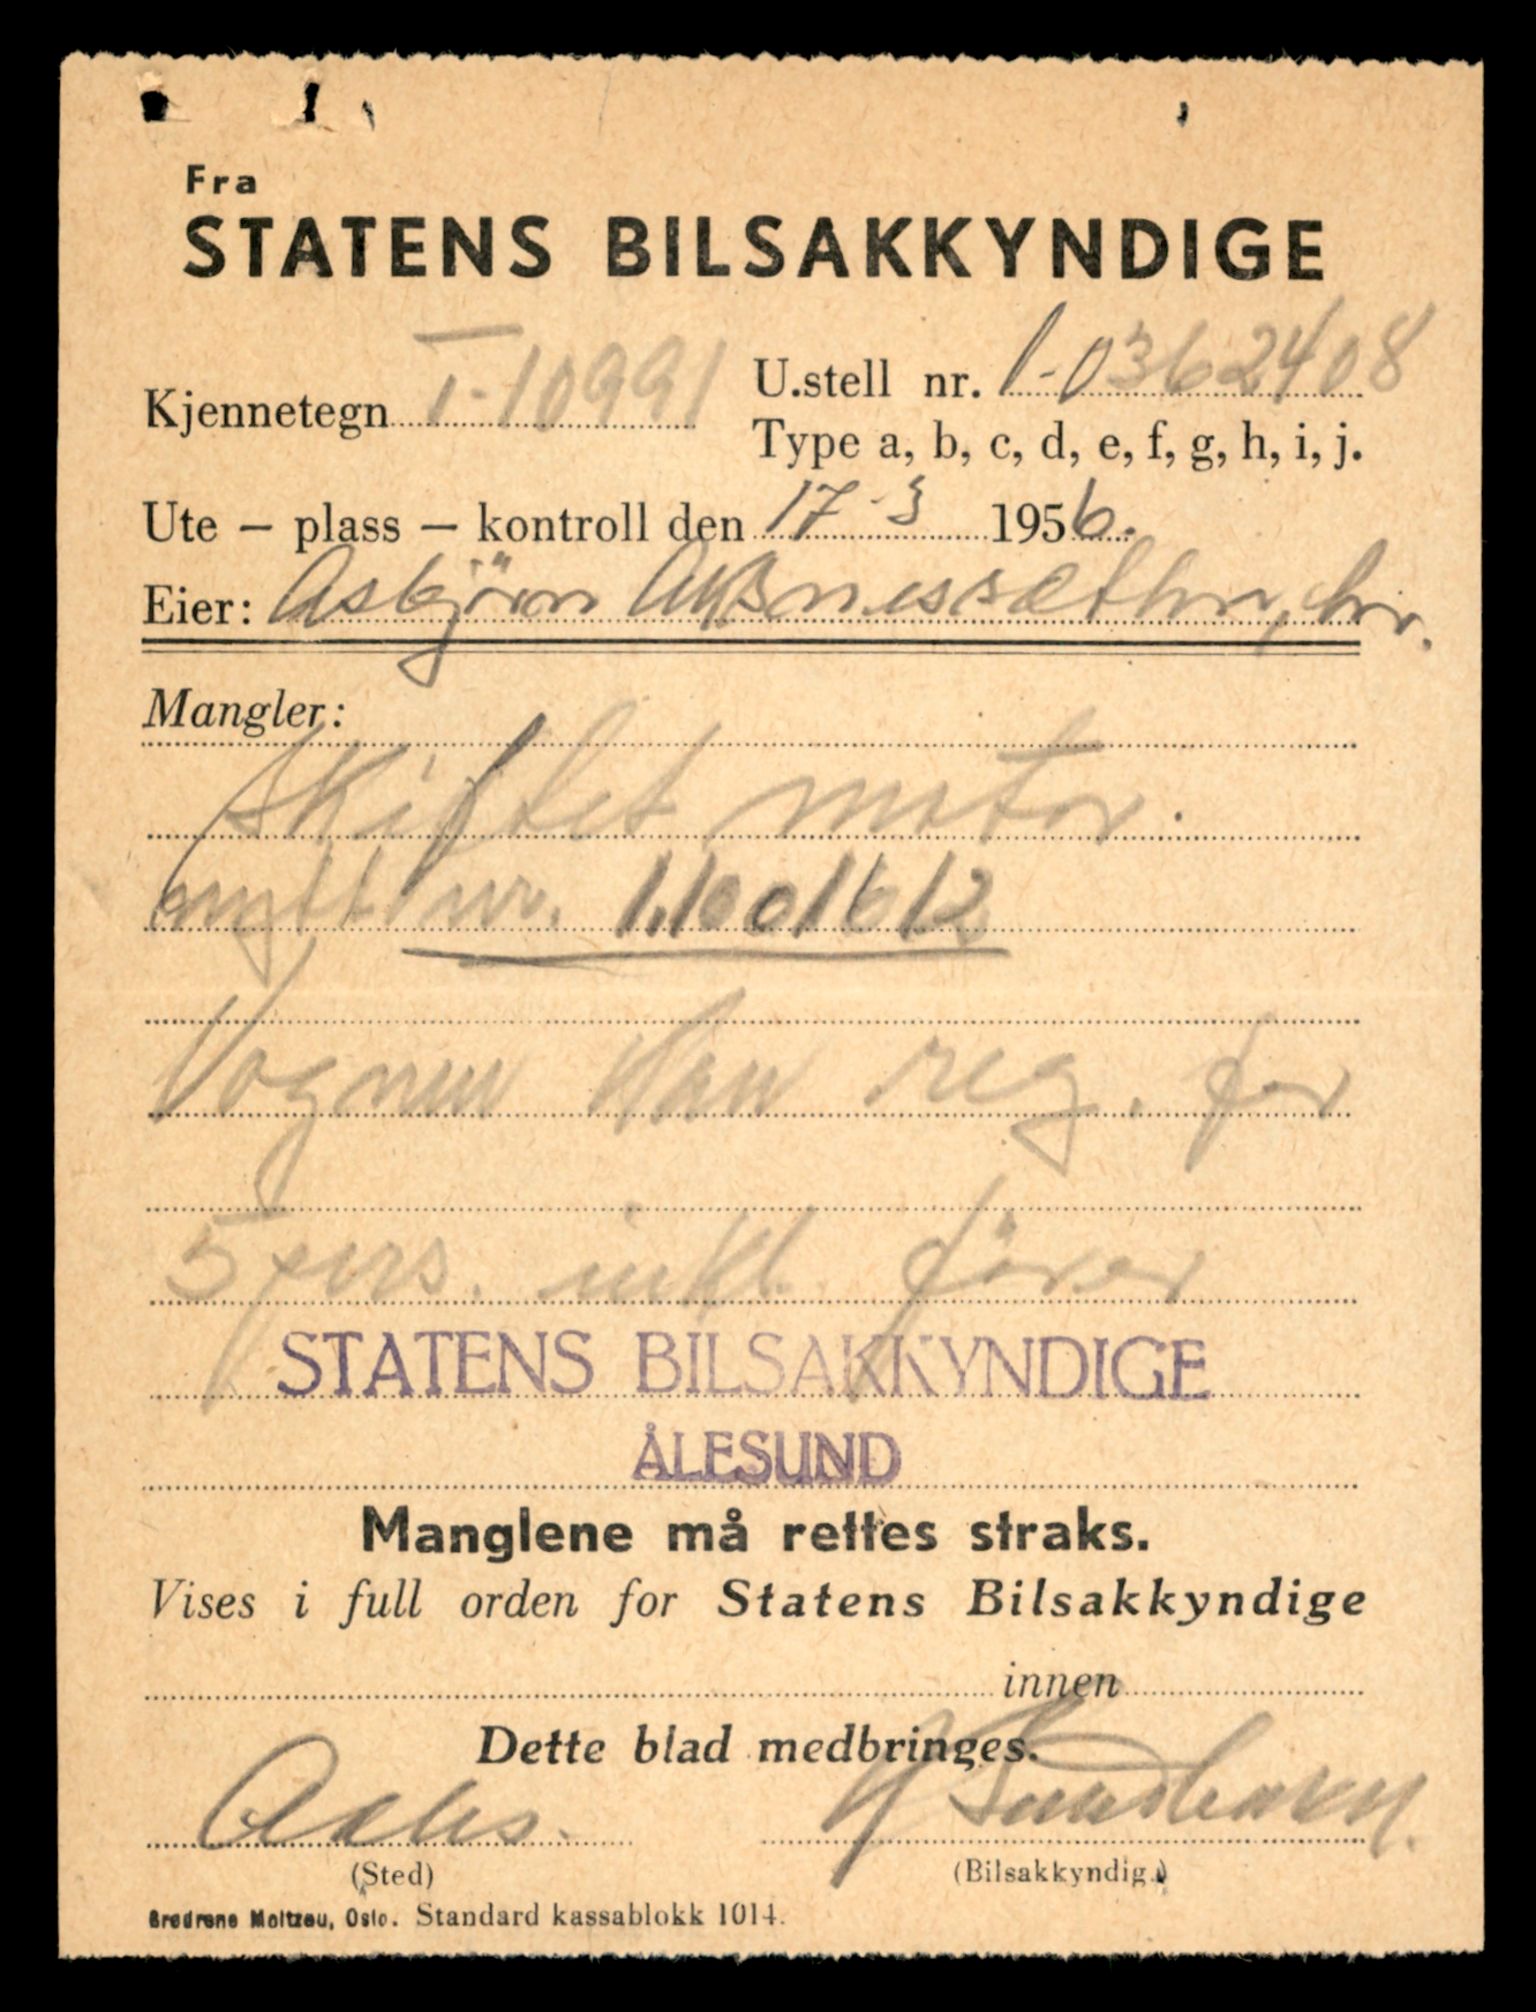 Fra
STATENS BILSAKKYNDIGE
Kjennetegn T-10991
U.stell nr. 1-0362408
Type a, b, c, d, e, f, g, h, i, j.
Ute – plass – kontroll den 17-3 1956.
Eier: Asbjörn
Mangler:
Skiftet motor.
nytt nr. 1.1601612
Vognen kan reg. for
5 pers. inkl. förer
STATENS BILSAKKYNDIGE
ÅLESUND
Manglene må rettes straks.
Vises i full orden for Statens Bilsakkyndige
innen
Dette blad medbringes.
(Sted)
(Bilsakkyndig.)
Brødrene Moltzau, Oslo. Standard kassablokk 1014.